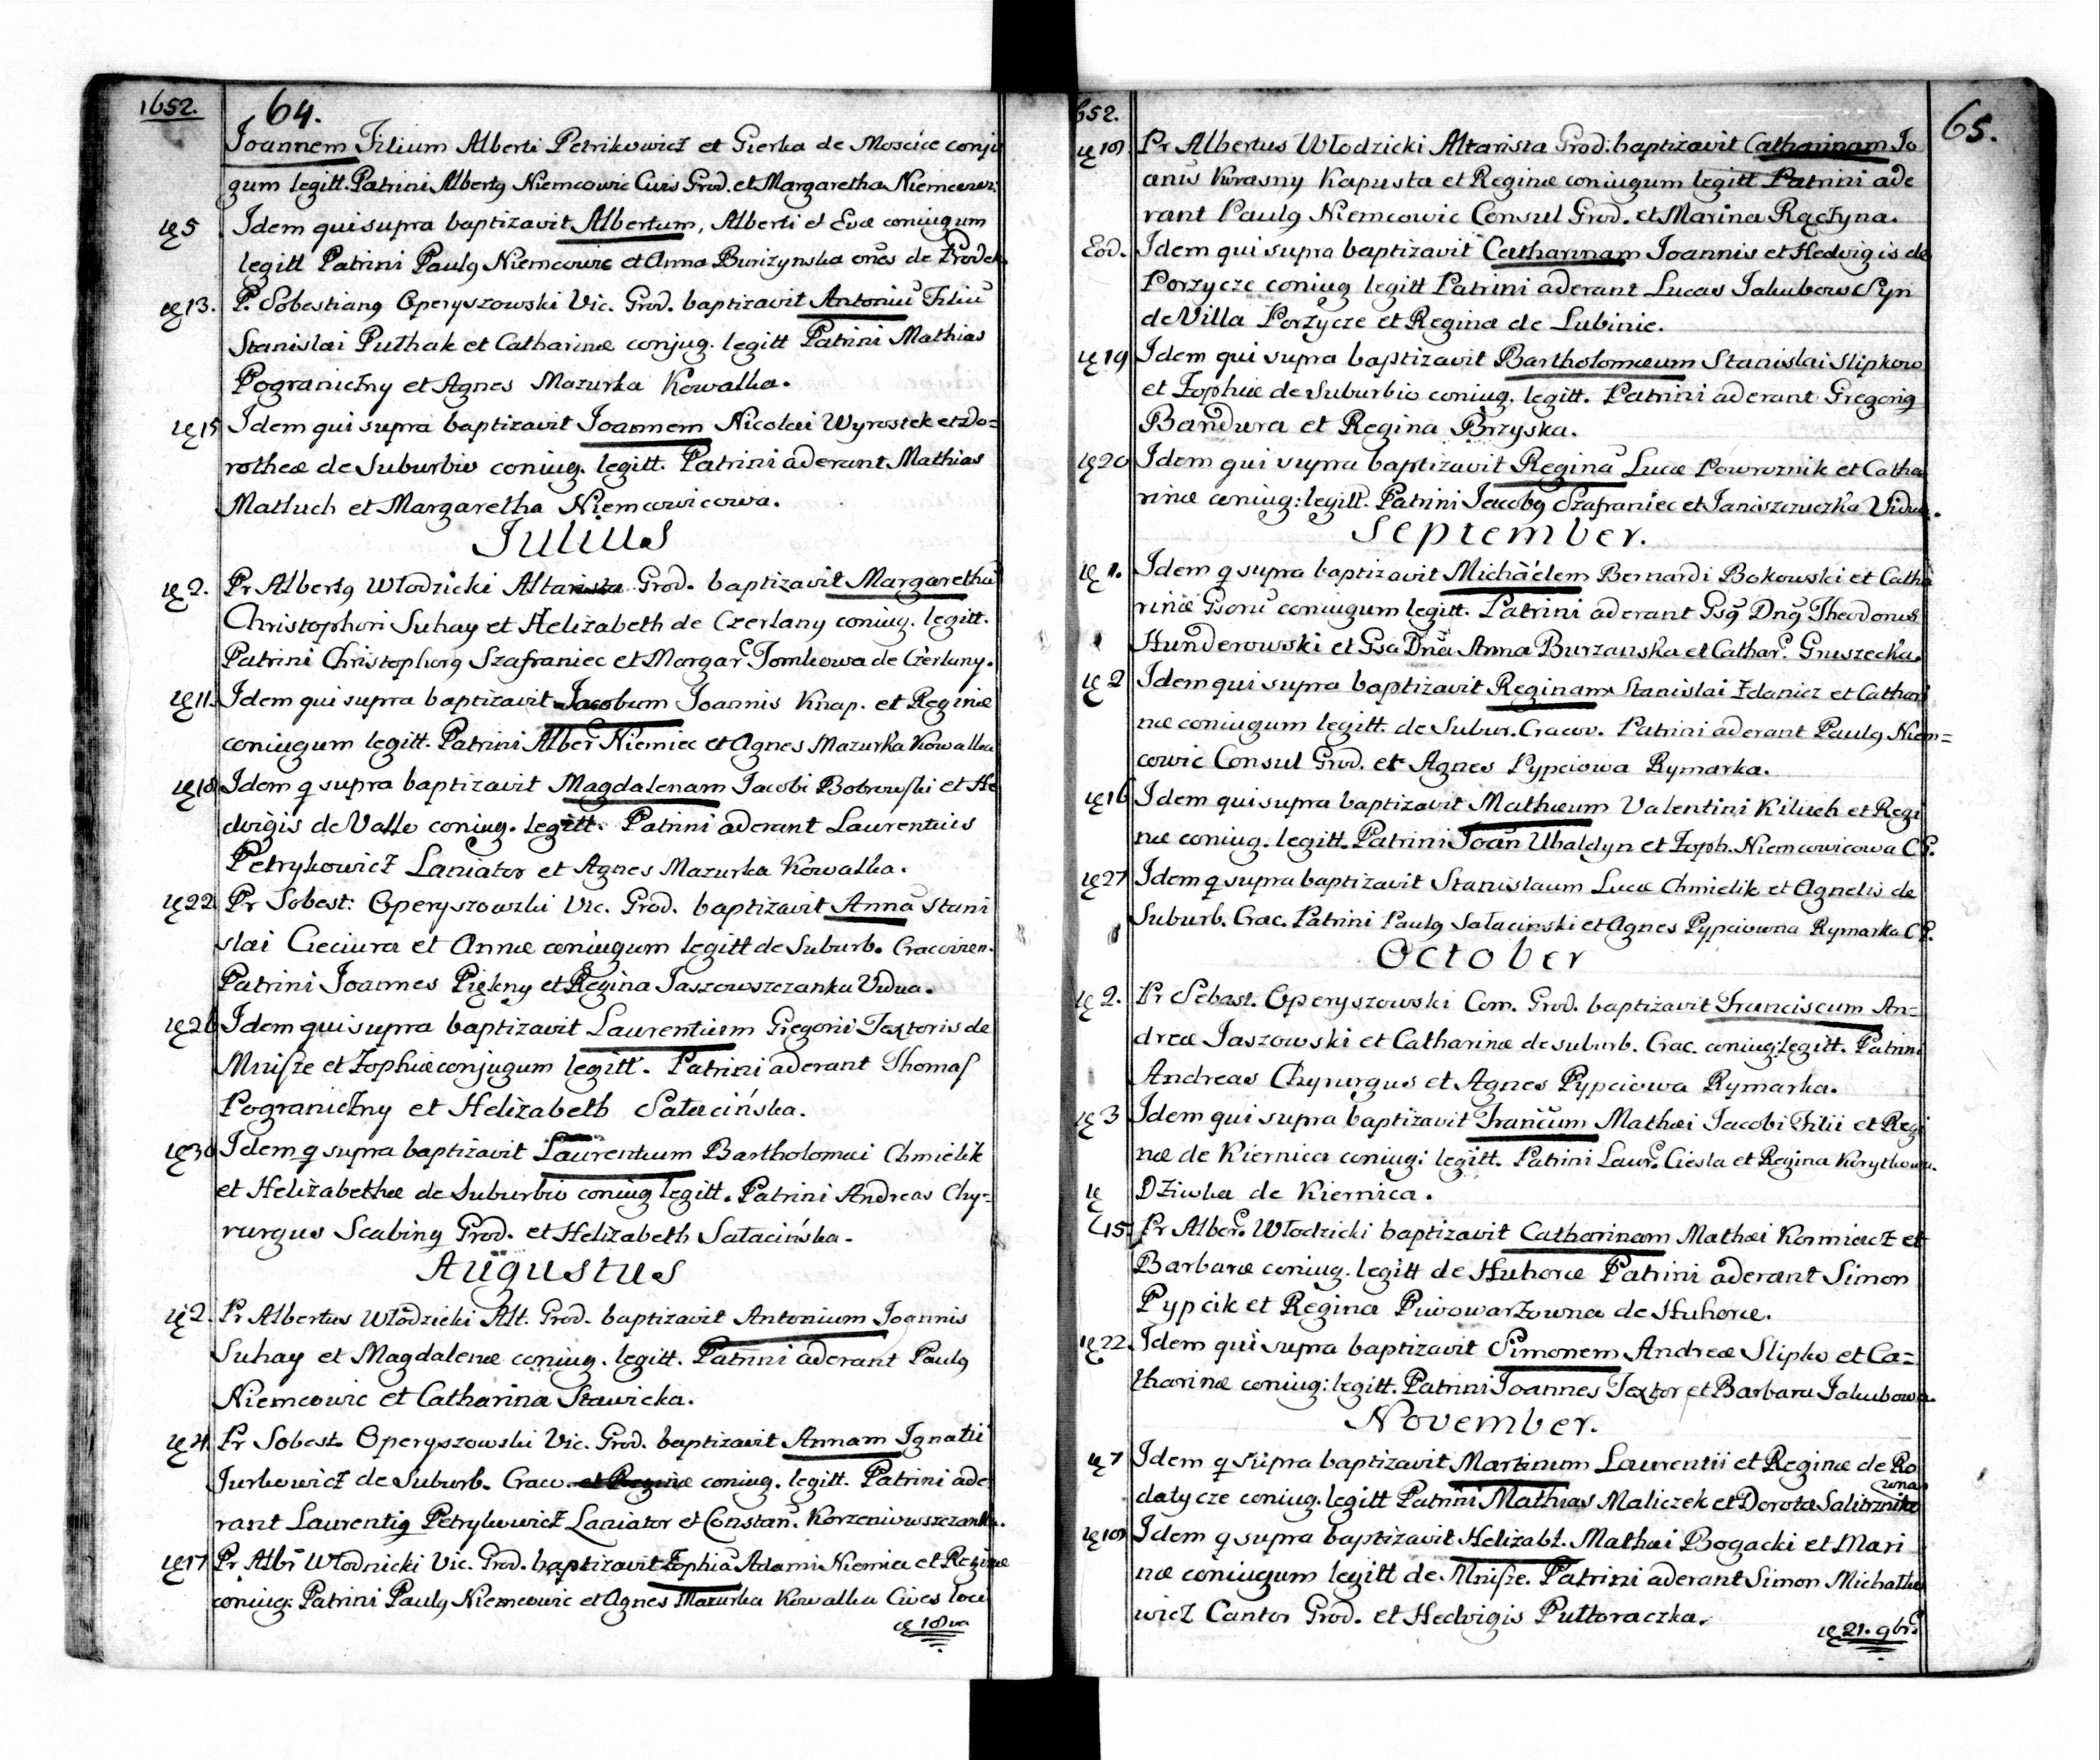 1652.
64.
Joannem Filium Alberti Petrikowicz et Gierka de Moscice conju
gum legitt. Patrini Albertq Niemcowic Civis Grod. et Margaretha Niemcowi.
ie 5 Idem qui supra baptizavit Albertum, Alberti et Evæ coniugum
legitt Patrini Paulq Niemcowic et Anna Burizynska oes de Grodek.
ie 13. P. Sobestianq Operyszowski Vic. Grod. baptizavit Antoniu Filiu
Stanislai Puthak et Catharinæ conjug. legitt Patrini Mathias
Pograniczny et Agnes Mazurka Kowalka.
ie 15 Idem qui supra baptizavit Joannem Nicolai Wyrostek et Do=
rotheæ de Suburbio coniug. legitt. Patrini aderant Mathias
Matluch et Margaretha Niemcowicowa.
Julius
ie 2. Pr Albertq Włodzicki Altarista Grod. baptizavit Margaretha
Christophori Suhay et Helizabeth de Czerlany coniug. legitt.
Patrini Christophorq Szafraniec et Margar Tomkowa de Czerlany.
ie 11. Idem qui supra baptizavit Jacobum Joannis Knap. et Reginæ
coniugum legitt. Patrini Alber Niemiec et Agnes Mazurka Kowalka
ie 18 Idem q supra baptizavit Magdalenam Jacobi Bobrowski et He
dvigis de Valle coniug. legitt. Patrini aderant Laurentius
Petrykowicz Laniator et Agnes Mazurka Kowalka.
ie 22 Pr Sobest: Operyszowski Vic. Grod. baptizavit Anna Stani
slai Cieciura et Annæ coniugum legitt de Suburb. Cracovien.
Patrini Joannes Piękny et Regina Jaszowszczanka Vidua.
ie 26 Idem qui supra baptizavit Laurentium Gregorii Textoris de
Mnisze et Zophiæ conjugum legitt. Patrini aderant Thomas
Pograniczny et Helizabeth Satacińska.
ie 30 Idem q supra baptizavit Laurentium Bartholomæi Chmielik
et Helizabethæ de Suburbio coniug legitt. Patrini Andreas Chy=
rurgus Scabinq Grod. et Helizabeth Satacińska.
Augustus
ie 2. Pr Albertus Włodzicki Alt. Grod. baptizavit Antonium Joannis
Suhay et Magdalenæ coniug. legitt. Patrini aderant Paulq
Niemcowic et Catharina Stawicka.
ie 4. Pr Sobest. Operyszowski Vic. Grod. baptizavit Annam Ignatii
Jurkowicz de Suburb. Craco. et Reginæ coniug. legitt. Patrini ade
rant Laurentiq Petrykowicz Laniator et Constan. Korzeniowszczanka.
ie 17 Pr Albr Włodnicki Vic. Grod. baptizavit Zophia Adami Niemiec et Reginæ
coniug. Patrini Paulq Niemcowic et Agnes Mazurka Kowalka Cives loci
ie 18va
652.
65.
ie 18 Pr Albertus Włodzicki Altarista Grod. baptizavit Catharinam Jo
anis Krasny Kapusta et Reginæ coniugum legitt Patrini ade
rant Paulq Niemcowic Consul Grod. et Marina Rączyna.
Eod. Idem qui supra baptizavit Catharinam Joannis et Hedvigis de
Porzycze coniug legitt Patrini aderant Lucas Jakubow Syn
de Villa Porzycze et Regina de Lubinie.
ie 19 Idem qui supra baptizavit Bartholomæum Stanislai Slipkow
et Zophiæ de Suburbio coniug. legitt. Patrini aderant Gregoriq
Bandura et Regina Brzyska.
ie 20 Idem qui supra baptizavit Regina Lucæ Powroznik et Catha
rinæ coniug: legitt. Patrini Jacobq Szafraniec et Janiszczuczka Vidua.
September.
ie 1. Idem q supra baptizavit Michaelem Bernardi Bokowski et Catha
rinæ Gsoru coniugum legitt. Patrini aderant Gsq Dnq Theodorus
Hunderowski et Gsa Dna Anna Burzanska et Cathar. Gnuszecka.
ie 2 Idem qui supra baptizavit Reginam Stanislai Zdanicz et Cathari
næ coniugum legitt. de Subur. Cracov. Patrini aderant Paulq Niem=
cowic Consul Grod. et Agnes Pypciowa Rymarka.
ie 16 Idem qui supra baptizavit Mathæum Valentini Kiluch et Regi
næ coniug. legitt. Patrini Joan Ubaldyn et Zoph. Niemcowicowa C G.
ie 27 Idem q supra baptizavit Stanislaum Lucæ Chmielik et Agnetis de
Suburb. Crac. Patrini Paulq Satacinski et Agnes Pypciowna Rymarka C G.
October
ie 2. Pr Sebast. Operyszowski Com. Grod. baptizavit Franciscum An=
dreæ Jaszowski et Catharinæ de suburb. Crac. coniug: legitt. Patrini
Andreas Chyrurgus et Agnes Pypciowa Rymarka.
ie 3 Idem qui supra baptizavit Francum Mathæi Jacobi Filii et Regi
næ de Kiernica coniug: legitt. Patrini Laur. Ciesla et Regina Korytkowa.
ie Dziwka de Kiernica.
15. Pr Alber. Włodzicki baptizavit Catharinam Mathæi Kormiacz et
Barbaræ coniug. legitt de Huhoræ Patrini aderant Simon
Pypcik et Regina Piwowarzowna de Huhoræ.
ie 22. Idem qui supra baptizavit Simonem Andreæ Slipko et Ca=
tharinæ coniug: legitt. Patrini Joannes Textor et Barbara Jakubowa.
November.
ie 7 Idem q supra baptizavit Martinum Laurentii et Reginæ de Ro
datycze coniug. legitt Patrini Mathias Maliczek et Dorota Salitrznikowna
ie 18 Idem q supra baptizavit Helizabt. Mathæi Bogacki et Mari
næ coniugum legitt de Mnisze. Patrini aderant Simon Michatko
wicz Cantor Grod. et Hedvigis Puttoraczka.
ie 21. 9bri